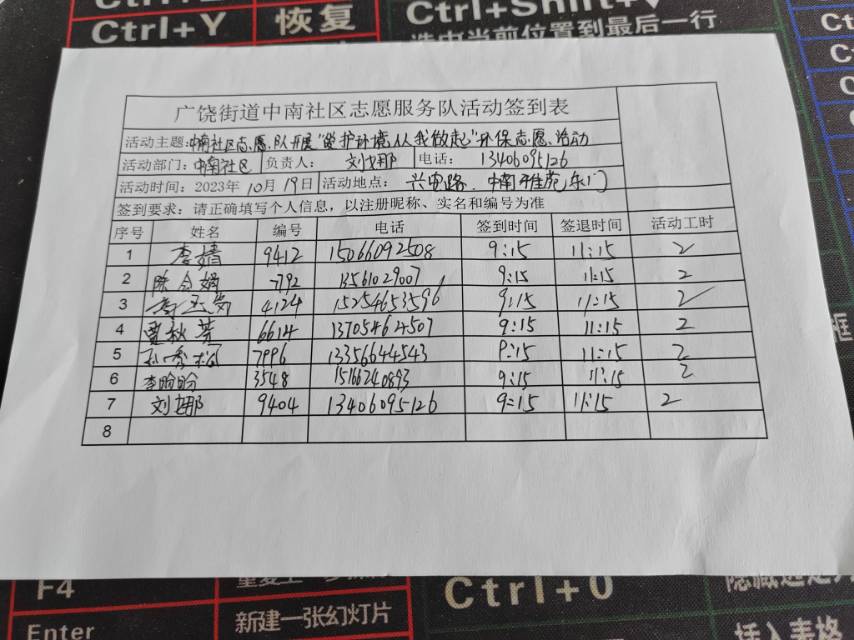 Ctrl+Y 恢复
Ctrl+Shift+
选中当前位置到最后一行
Ctrl
Ctrl
广饶街道中南社区志愿服务队活动签到表
活动主题：中南社区志愿队开展"爱护环境从我做起"环保志愿活动
活动部门：中南社区 负责人： 刘娜 电话： 13406095126
活动时间：2023年10月19日 活动地点： 兴安路 中南 东门
签到要求：请正确填写个人信息，以注册昵称、实名和编号为准
序号 姓名 编号 电话 签到时间 签退时间 活动工时
1 李婧 9412 15066092508 9:15 11:15 2
2 7792 13561029007 9:15 11:15 2
3 4124 15254653596 9:15 11:15 2
4 贾秋芳 6614 13705464507 9:15 11:15 2
5 7996 13356644543 9:15 11:15 2
6 李盼盼 3548 15166240893 9:15 11:15 2
7 刘娜 9404 13406095126 9:15 11:15 2
8
框
F4
Ctrl+0
Enter 新建一张幻灯片
插入表格